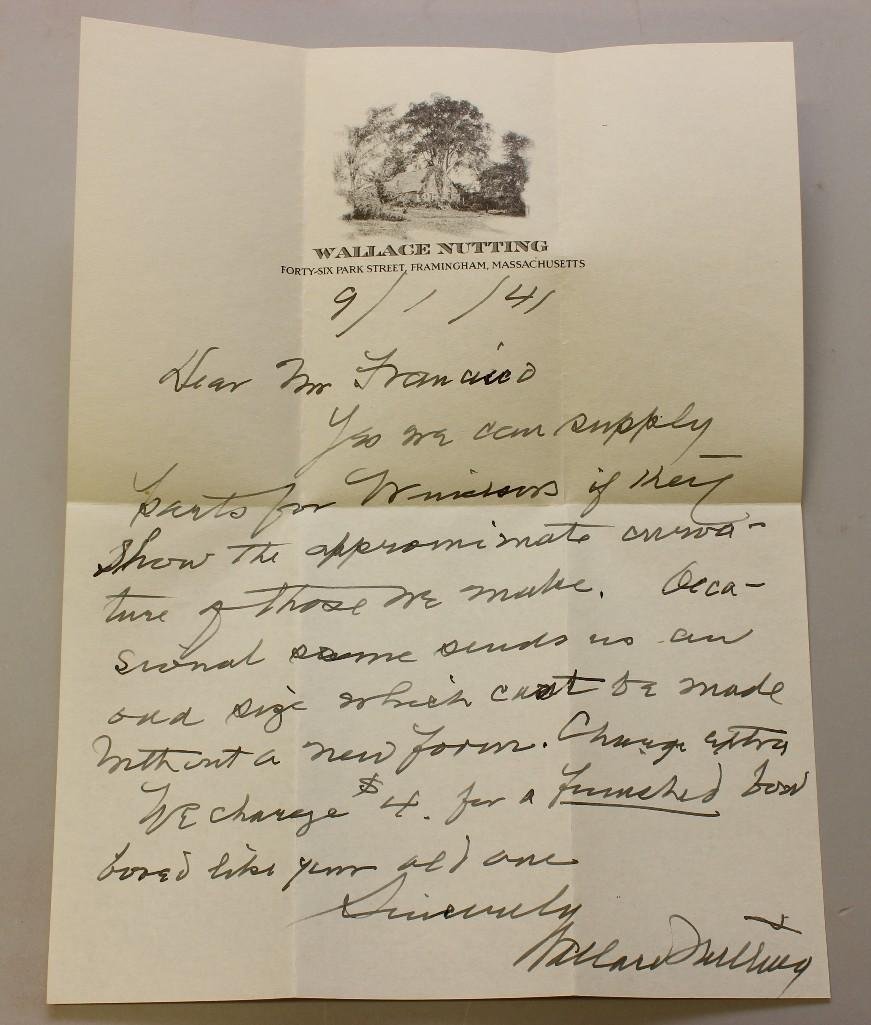 WALLACE NUTTING
FORTY-SIX PARK STREET, FRAMINGHAM, MASSACHUSETTS
9/1/41
Dear Mr Francisco
Yes we can supply
parts for Windsors if they
show the approximate curva-
ture of those we make. Occa-
sional some sends us an
odd size which can't be made
without a new form. Charge extra
We charge $4. for a finished bow
bored like your old one
Sincerely
Wallace Nutting